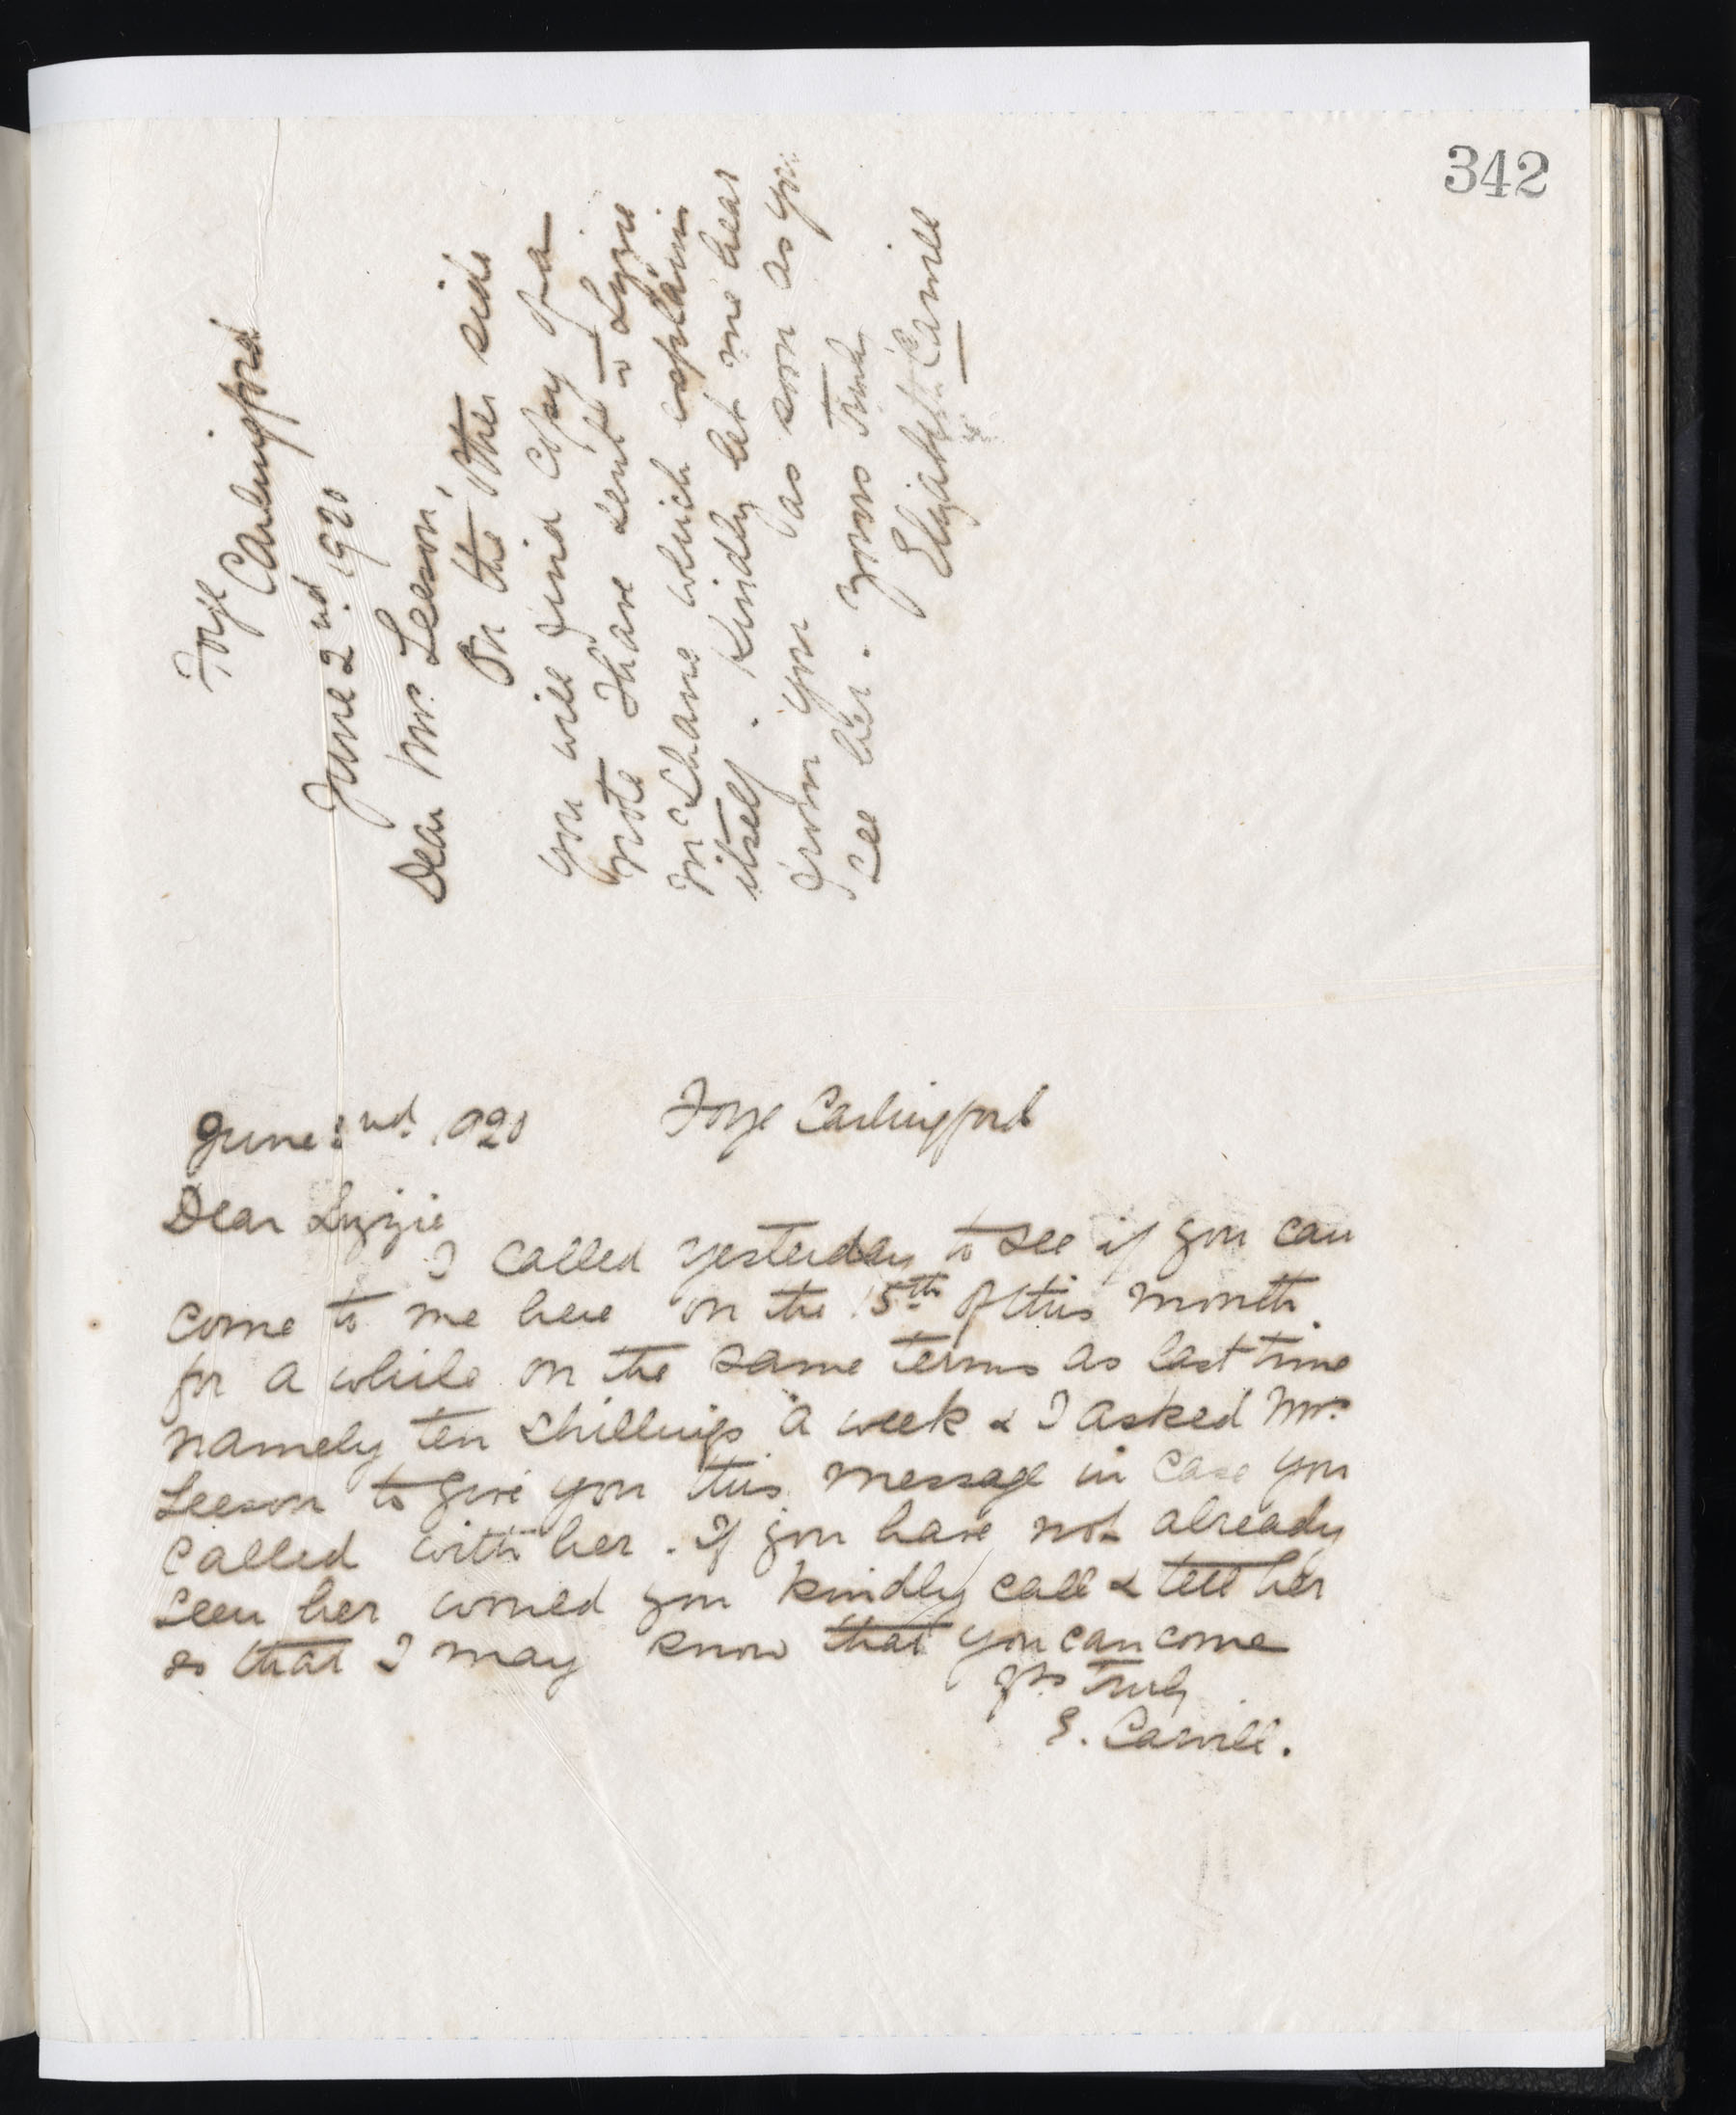 342
Foye
Carlingford
June 2nd. 1920
Dear Mrs. Leeson,
On the other side
you will find Copy of a
note I have sent to Lizzie
McShane which explains
itself. Kindly let me hear
from you as soon as you
see her. Yours Truly
Elizabeth Carvill
June 2nd. 1920 Foye Carlingford
Dear Lizzie
I called yesterday to see if you can
come to me here on the 15th of this month
for a while on the same terms as last time
namely ten shillings a week & I asked Mrs.
Leeson to give you this message in case you
called with her. If you have not already
seen her would you kindly call & tell her
so that I may know that you can come
yrs Truly
E. Carvill.